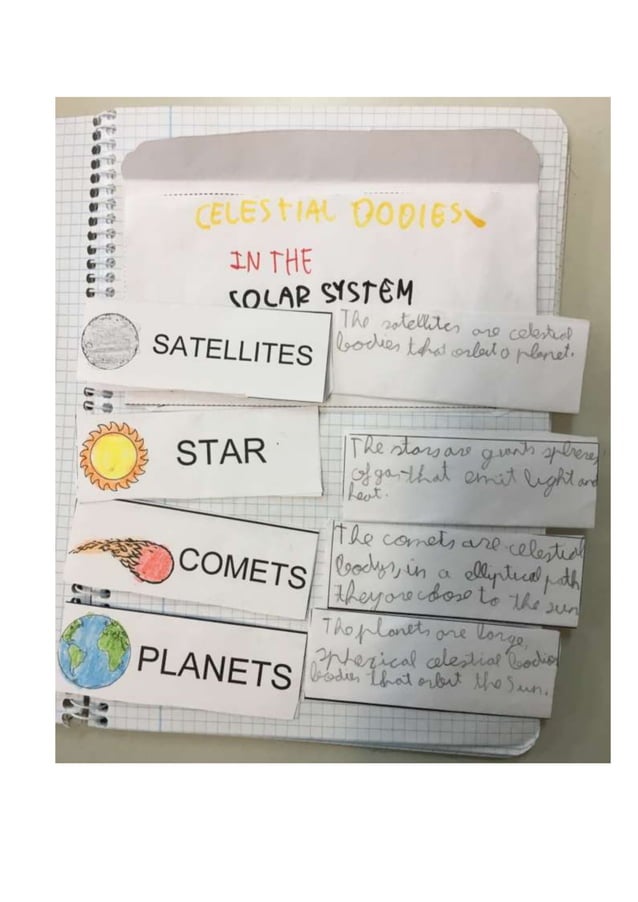 CELESTIAL BODIES
IN THE
SOLAR SYSTEM
SATELLITES
The satellites are celestial
bodies that orbit a planet.
STAR
The stars are giants spheres
of gas that emit light and
heat.
COMETS
The comets are celestial
bodys, in a elliptical path
they are close to the sun
PLANETS
The planets are large,
spherical celestial bodies
bodies that orbit the Sun.